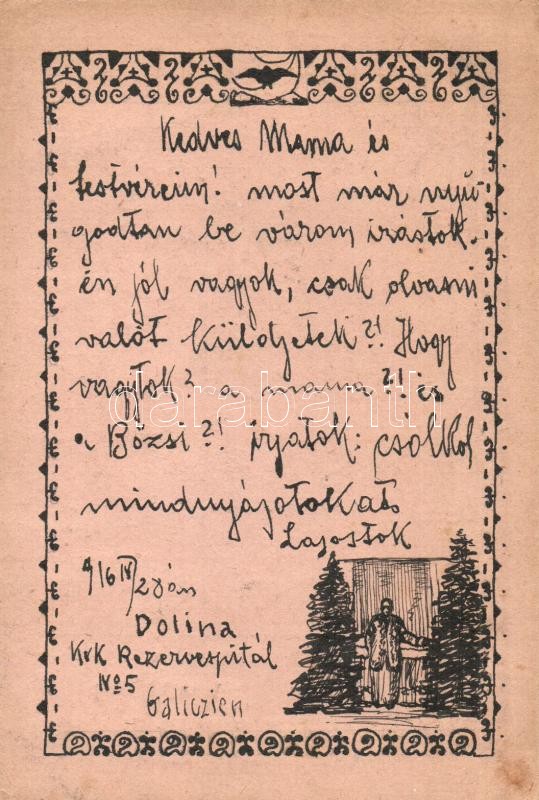 Kedves Mama és
testvéreim! most már nyu
godtan be várom irástok.
én jól vagyok, csak olvasni
valót küldjetek?! Hogy
vagytok? a mama?! és
a Bözsi?! irjatok: csolkol
mindnyájotokat
Lajostok
916 IV/28án
Dolina
KuK Rezervespitál
No 5
Galiczien
darabanth